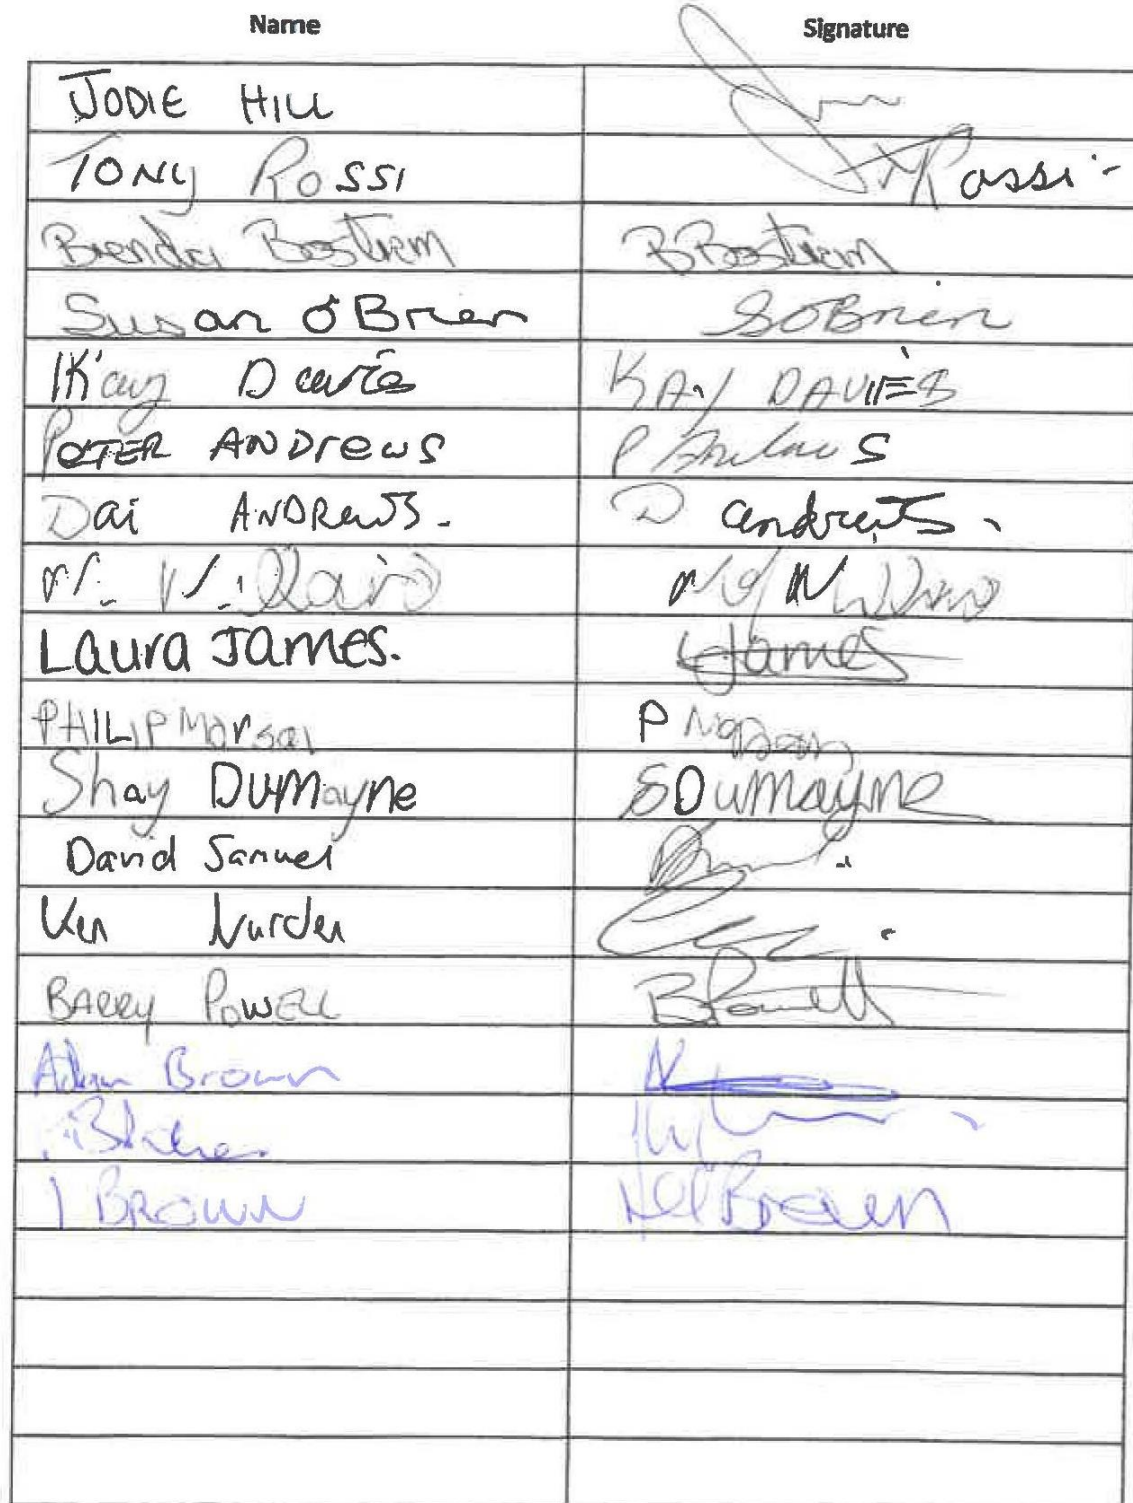 Name Signature
JODIE HILL
TONY ROSSI Rossi
Brenda Bostrem B Bostrem
Susan O'Brien S O Brien
Kay Davies KAY DAVIES
PETER ANDrewS P
Dai ANDREWS. D andrews.
Laura James. L James
PHILIP Morgan P Morgan
Shay DuMayne S Dumayne
David Samuel
Ken Nurden
BARRY POWELL B Powell
Adam Brown
J BROWN Brown